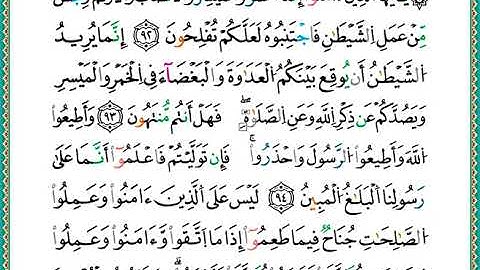 مِّنْ عَمَلِ اِ۬لشَّيْطَٰنِ فَاجْتَنِبُوهُ لَعَلَّكُمْ تُفْلِحُونَ ٩٢ إِنَّمَا يُرِيدُ
اُ۬لشَّيْطَٰنُ أَنْ يُّوقِعَ بَيْنَكُمُ اُ۬لْعَدَٰوَةَ وَالْبَغْضَآءَ فِے اِ۬لْخَمْرِ وَالْمَيْسِرِ
وَيَصُدَّكُمْ عَن ذِكْرِ اِ۬للَّهِ وَعَنِ اِ۬لصَّلَوٰةِۖ فَهَلْ أَنتُم مُّنتَهُونَ ٩٣ وَأَطِيعُواْ
اُ۬للَّهَ وَأَطِيعُواْ اُ۬لرَّسُولَ وَاحْذَرُواْۖ فَإِن تَوَلَّيْتُمْ فَاعْلَمُوٓاْ أَنَّمَا عَلَىٰ
رَسُولِنَا اَ۬لْبَلَٰغُ اُ۬لْمُبِينُ ٩٤ لَيْسَ عَلَى اَ۬لذِينَ ءَامَنُواْ وَعَمِلُواْ
اُ۬لصَّٰلِحَٰتِ جُنَاحٌ فِيمَا طَعِمُوٓاْ إِذَا مَا اَ۪تَّقَواْ وَّءَامَنُواْ وَعَمِلُواْ